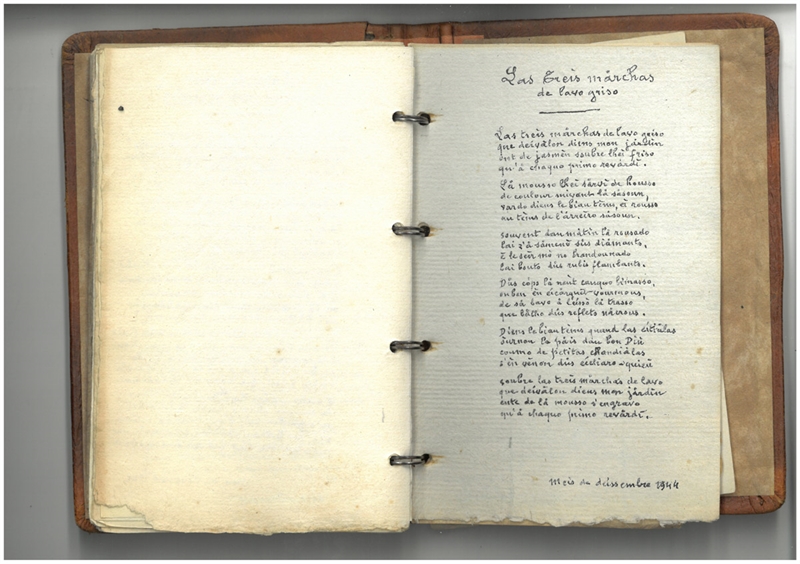 Las treis mårchas
de lavo griso
Las treis mårchas de lavo griso
que deivålon diens mon jårdin
ont de jasmën ssubre lhei friso
qu'å chaquo primo revårdï.
Lå mousso lhei sårvï de housso
de coulour suivant lå såsoun,
vardo diens le biau tëms, ei rousso
au tëms de l'årreiro såsoun.
souvent dau måtin lå rousado
lai z'å såmenå sùs diåmants,
ë le sër mo no brandounado
lai bouto dùs rubis flambants.
Dùs cóps lå nout cauquo limasso,
ouben ën eicårguil-vourmous,
de så bavo å leisså lå trasso
que båtho dùs reflets nåcrous.
Diens le biau tëms quand las eitiålas
ournon le påis dau bon Diù
coumo de petitas chandiålas
s'ën vënon dùs eicliaro-quieù
soubre las treis mårchas de lavo
que deivålon diens mon jårdin
ente de lå mousso s'engravo
qu'å chaquo primo revårdï.
Meis de deissembre 1944